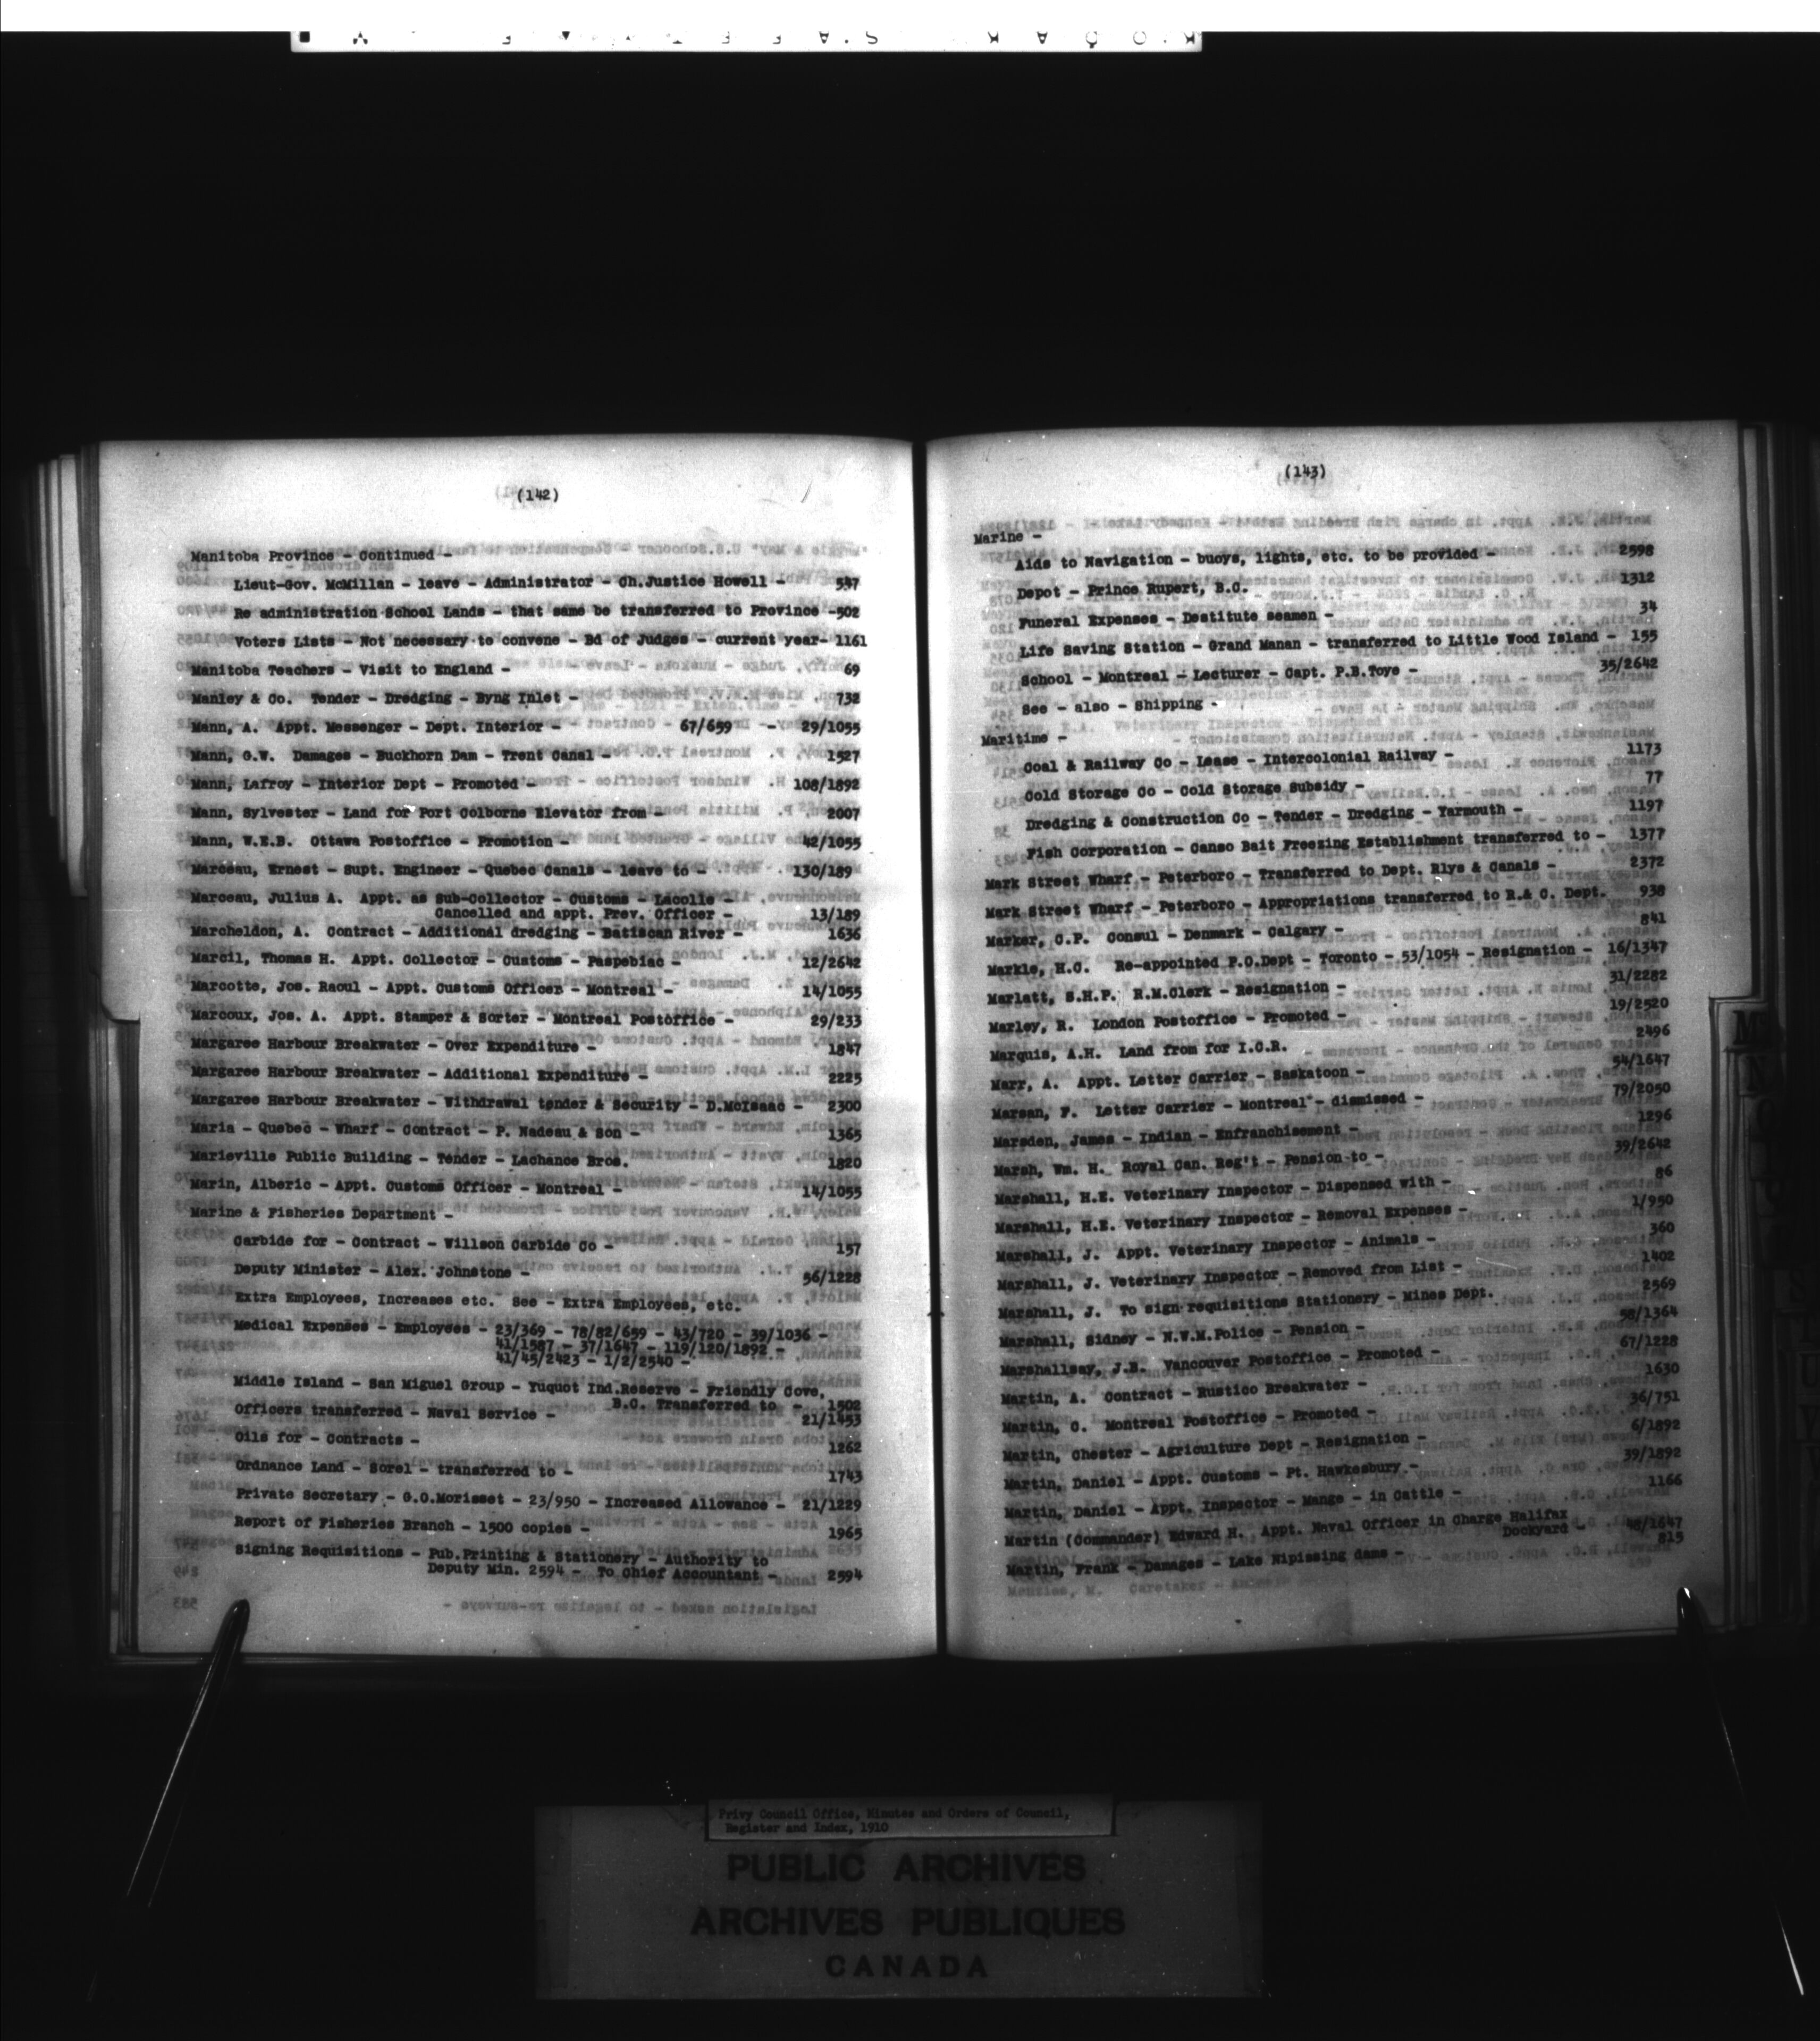 (142)
Manitoba Province - Continued -
Lieut-Gov. McMillan - leave - Administrator - Ch.Justice Howell - 547
Re administration School Lands - that same be transferred to Province -502
Voters Lists - Not necessary to convene - Bd of Judges - current year- 1161
Manitoba Teachers - Visit to England - 69
Manley & Co. Tender - Dredging - Byng Inlet - 732
Mann, A. Appt. Messenger - Dept. Interior - 67/659 - 29/1055
Mann, G.W. Damages - Buckhorn Dam - Trent Canal - 1527
Mann, Lafroy - Interior Dept - Promoted - 108/1892
Mann, Sylvester - Land for Port Colborne Elevator from - 2007
Mann, W.E.B. Ottawa Postoffice - Promotion - 42/1055
Marceau, Ernest - Supt. Engineer - Quebec Canals - leave to - 130/189
Marceau, Julius A. Appt. as Sub-Collector - Customs - Lacolle -
Cancelled and appt. Prev. Officer - 13/189
Marcheldon, A. Contract - Additional dredging - Batiscan River - 1636
Marcil, Thomas H. Appt. Collector - Customs - Paspebiac - 12/2642
Marcotte, Jos. Raoul - Appt. Customs Officer - Montreal - 14/1055
Marcoux, Jos. A. Appt. Stamper & Sorter - Montreal Postoffice - 29/233
Margaree Harbour Breakwater - Over Expenditure - 1847
Margaree Harbour Breakwater - Additional Expenditure - 2225
Margaree Harbour Breakwater - Withdrawal tender & Security - D.McIsaac - 2300
Maria - Quebec - Wharf - Contract - P. Nadeau & Son - 1365
Marieville Public Building - Tender - Lachance Bros. 1820
Marin, Alberic - Appt. Customs Officer - Montreal - 14/1055
Marine & Fisheries Department -
Carbide for - Contract - Willson Carbide Co - 157
Deputy Minister - Alex. Johnstone - 56/1228
Extra Employees, Increases etc. See - Extra Employees, etc.
Medical Expenses - Employees - 23/369 - 78/82/659 - 43/720 - 39/1036 -
41/1587 - 37/1647 - 119/120/1892 -
41/45/2423 - 1/2/2540 -
Middle Island - San Miguel Group - Yuquot Ind.Reserve - Friendly Cove,
B.C. Transferred to - 1502
Officers transferred - Naval Service - 21/1453
Oils for - Contracts - 1262
Ordnance Land - Sorel - transferred to - 1743
Private Secretary - G.O.Morisset - 23/950 - Increased Allowance - 21/1229
Report of Fisheries Branch - 1500 copies - 1965
Signing Requisitions - Pub.Printing & Stationery - Authority to
Deputy Min. 2594 - To Chief Accountant - 2594
(143)
Marine -
Aids to Navigation - buoys, lights, etc. to be provided - 2598
Depot - Prince Rupert, B.C. 1312
Funeral Expenses - Destitute seamen - 34
Life Saving Station - Grand Manan - transferred to Little Wood Island - 155
School - Montreal - Lecturer - Capt. P.B.Toye - 35/2642
See - also - Shipping -
Maritime -
Coal & Railway Co - Lease - Intercolonial Railway - 1173
Cold Storage Co - Cold Storage Subsidy - 77
Dredging & Construction Co - Tender - Dredging - Yarmouth - 1197
Fish Corporation - Canso Bait Freezing Establishment transferred to - 1377
Mark Street Wharf - Peterboro - Transferred to Dept. Rlys & Canals - 2372
Mark Street Wharf - Peterboro - Appropriations transferred to R.& C. Dept. 938
Marker, C.P. Consul - Denmark - Calgary - 841
Markle, H.C. Re-appointed P.O.Dept - Toronto - 53/1054 - Resignation - 16/1347
Marlatt, S.H.P. R.M.Clerk - Resignation - 31/2282
Marley, R. London Postoffice - Promoted - 19/2520
Marquis, A.H. Land from for I.C.R. 2496
Marr, A. Appt. Letter Carrier - Saskatoon - 54/1647
Marsan, F. Letter Carrier - Montreal - dismissed - 79/2050
Marsden, James - Indian - Enfranchisement - 1296
Marsh, Wm. H. Royal Can. Reg't - Pension to - 39/2642
Marshall, H.E. Veterinary Inspector - Dispensed with - 86
Marshall, H.E. Veterinary Inspector - Removal Expenses - 1/950
Marshall, J. Appt. Veterinary Inspector - Animals - 360
Marshall, J. Veterinary Inspector - Removed from List - 1402
Marshall, J. To sign requisitions Stationery - Mines Dept. 2569
Marshall, Sidney - N.W.M.Police - Pension - 58/1364
Marshallsay, J.B. Vancouver Postoffice - Promoted - 67/1228
Martin, A. Contract - Rustico Breakwater - 1630
Martin, C. Montreal Postoffice - Promoted - 36/751
Martin, Chester - Agriculture Dept - Resignation - 6/1892
Martin, Daniel - Appt. Customs - Pt. Hawkesbury - 39/1892
Martin, Daniel - Appt. Inspector - Mange - in Cattle - 1166
Martin (Commander) Edward H. Appt. Naval Officer in Charge Halifax
Dockyard - 48/1647
Martin, Frank - Damages - Lake Nipissing dams - 815
Privy Council Office, Minutes and Orders of Council,
Register and Index, 1910
PUBLIC ARCHIVES
ARCHIVES PUBLIQUES
CANADA